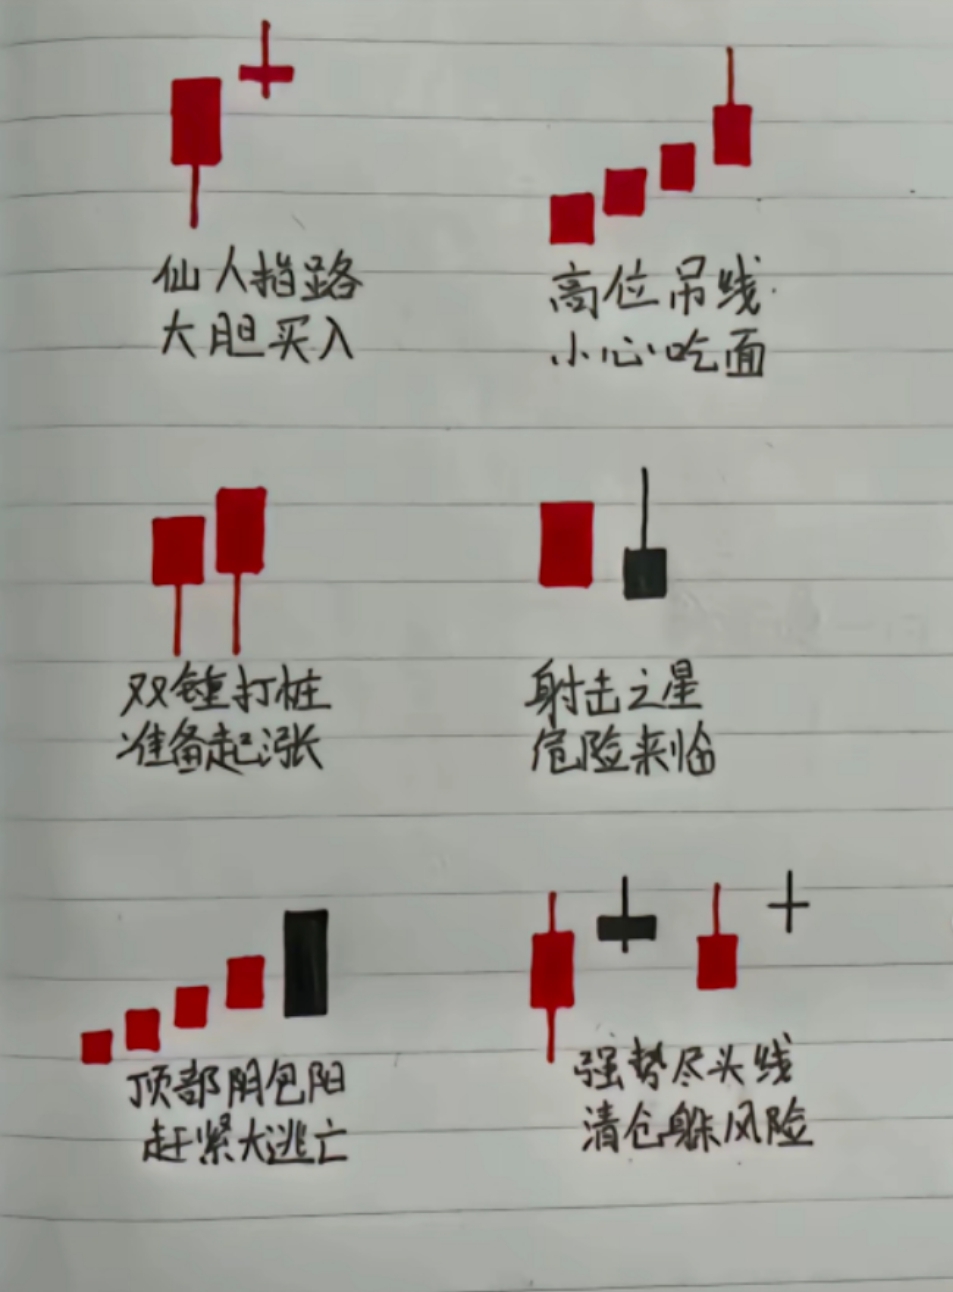 仙人指路
大胆买入
高位吊线
小心吃面
双锤打桩
准备起涨
射击之星
危险来临
顶部阴包阳
赶紧大逃亡
强势尽头线
清仓躲风险